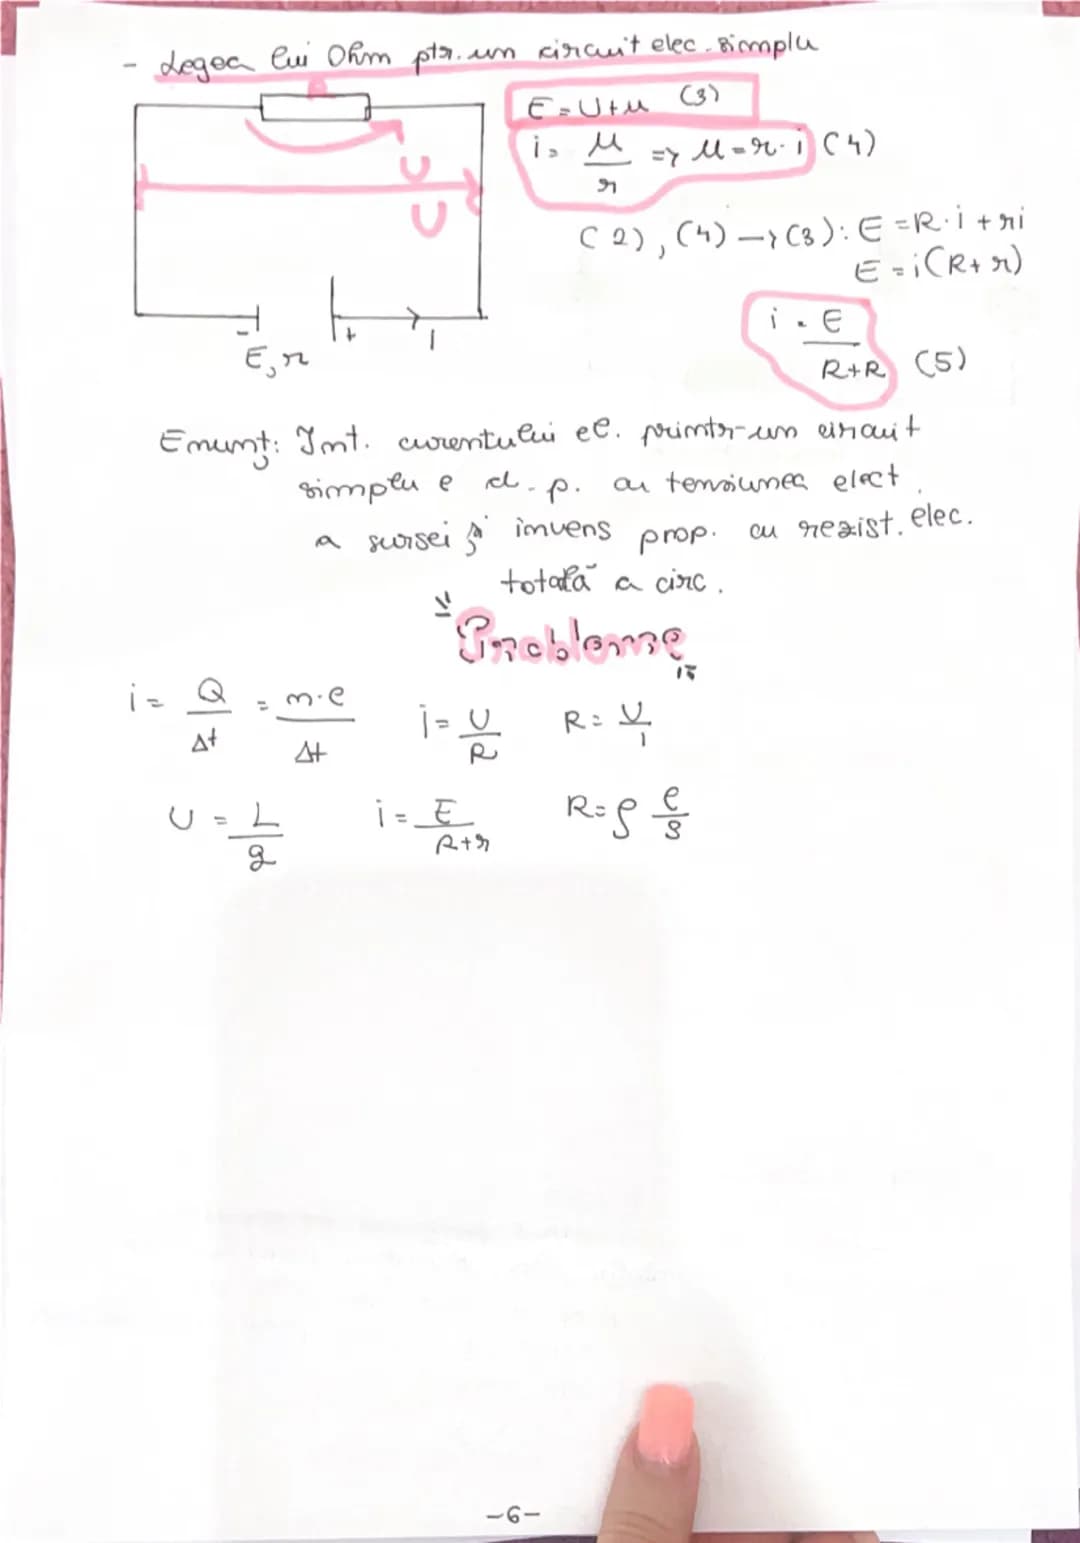 - Legea lui Ohm ptr. un circuit elec. simplu
E = U + u (3)
i = u/r => u = r · i (4)
U
U
(2), (4) → (3): E = R · i + ri
E = i(R + r)
i = E/R+R (5)
- +
i
E, r
Enunț: Int. curentului el. printr-un circuit
simplu e d. p. cu tensiunea elect.
a sursei și invens prop. cu rezist. elec.
totală a circ.
"Probleme"
i = Q/Δt = n·e/Δt i = U/R R = U/i
U = L/q i = E/R+r R = ρ l/s
-6-